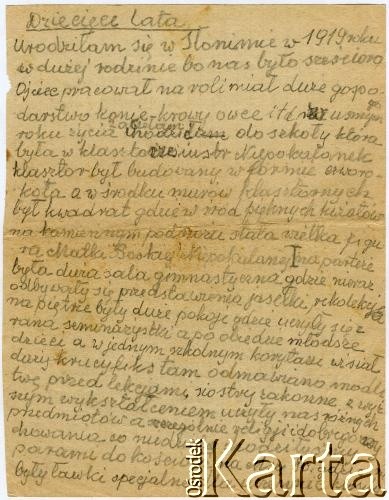 Dziecięce lata
Urodziłam się w Słonimie w 1919 roku
w dużej rodzinie bo nas było sześcioro
Ojciec pracował na roli miał duże gospo-
darstwo konie-krowy owce itd w usmym
roku życia do szkoły która
była w klasztorze sióstr Niepokalanek
klasztor był budowany w formie czworo-
kąta a w środku murów klasztornych
był kwadrat gdzie wśród pięknych kwiatów
na kamiennym podnóżu stała wielka figu-
ra Matka Boskiej Niepokalanej na parterze
była duża sala gimnastyczna gdzie nieraz
odbywały się przedstawienia jasełka, rekolekcje
na piętrze były duże pokoje gdzie uczyły się z
rana seminarzystki a po obiedzie młodsze
dzieci a w jednym szkolnym korytarzu wisiał
duży krucyfiks tam odmawiano modli
twę przed lekcjami, siostry zakonne z wyż
szym wykształceniem uczyły nas różnych
przedmiotów a szczególnie religji i dobrego
chowania co niedziela
parami do kościoła
były ławki specjalnie
Ośrodek
Karta